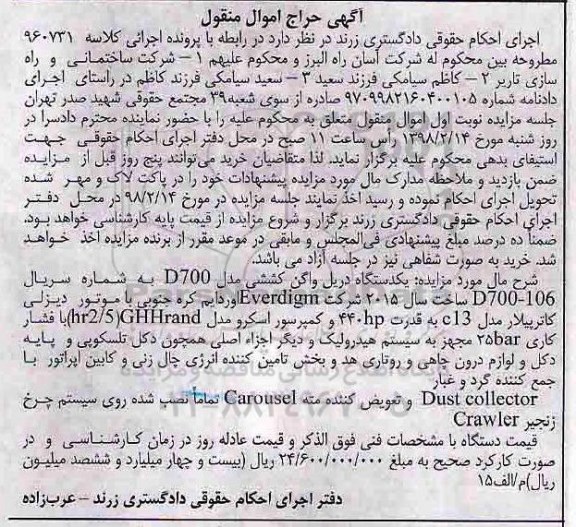 آگهی حراج اموال منقول
اجرای احکام حقوقی دادگستری زرند در نظر دارد در رابطه با پرونده اجرائی کلاسه ۹۶۰۷۳۱
مطروحه بین محکوم له شرکت آسان راه البرز و محکوم علیهم ۱ – شرکت ساختمانی و راه
سازی تاریر ۲ – کاظم سیامکی فرزند سعید ۳ – سعید سیامکی فرزند کاظم در راستای اجرای
دادنامه شماره ۹۷۰۹۹۸۲۱۶۰۴۰۰۱۰۵ صادره از سوی شعبه۴۹ مجتمع حقوقی شهید صدر تهران
جلسه مزایده نوبت اول اموال منقول متعلق به محکوم علیه را با حضور نماینده محترم دادسرا در
روز شنبه مورخ ۱۳۹۸/۲/۱۴ رأس ساعت ۱۱ صبح در محل دفتر اجرای احکام حقوقی جهت
استیفای بدهی محکوم علیه برگزار نماید. لذا متقاضیان خرید می‌توانند پنج روز قبل از مزایده
ضمن بازدید و ملاحظه مدارک مال مورد مزایده پیشنهادات خود را در پاکت لاک و مهر شده
تحویل اجرای احکام نموده و رسید اخذ نمایند جلسه مزایده در مورخ ۹۸/۲/۱۴ در محل دفتر
اجرای احکام حقوقی دادگستری زرند برگزار و شروع مزایده از قیمت پایه کارشناسی خواهد بود.
ضمناً ده درصد مبلغ پیشنهادی فی‌المجلس و مابقی در موعد مقرر از برنده مزایده اخذ خواهد
شد. خرید به صورت شفاهی نیز در جلسه آزاد می باشد.
شرح مال مورد مزایده: یکدستگاه دریل واگن کششی مدل D700 به شماره سریال
D700-106 ساخت سال ۲۰۱۵ شرکت Everdigmاورداریم کره جنوبی با موتور دیزلی
کاترپیلار مدل c13 به قدرت ۴۴۰hp و کمپرسور اسکرو مدل GHHrand(hr2/5)با فشار
کاری ۲۵bar مجهز به سیستم هیدرولیک و دیگر اجزاء اصلی همچون دکل تلسکوپی و پایه
دکل و لوازم درون چاهی و روتاری هد و بخش تامین کننده انرژی چال زنی و کابین اپراتور با
جمع کننده گرد و غبار
Dust collector و تعویض کننده مته Carousel تماماً نصب شده روی سیستم چرخ
زنجیر Crawler
قیمت دستگاه با مشخصات فنی فوق الذکر و قیمت عادله روز در زمان کارشناسی و در
صورت کارکرد صحیح به مبلغ ۲۴/۶۰۰/۰۰۰/۰۰۰ ریال (بیست و چهار میلیارد و ششصد میلیون
ریال)م/الف۱۵
دفتر اجرای احکام حقوقی دادگستری زرند – عرب‌زاده